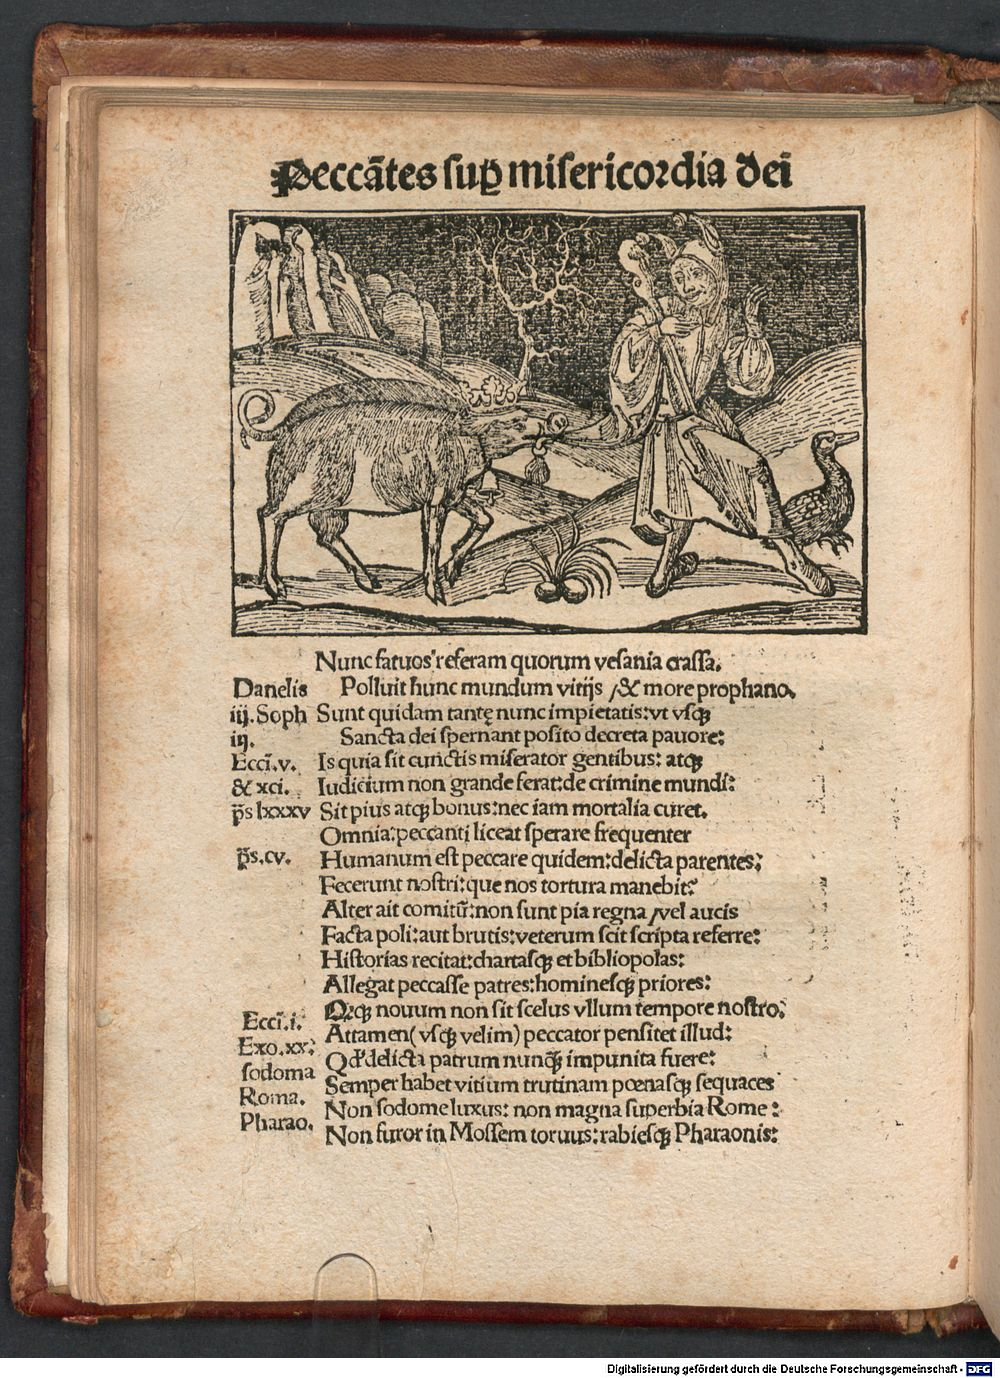 Peccātes suꝑ misericordia dei
Nunc fatuos referam quorum vesania crassa.
Danelis
Polluit hunc mundum vitijs /& more prophano.
iij. Soph
Sunt quidam tantę nunc impietatis: vt vsqꝫ
iij.
Sancta dei spernant posito decreta pavore:
Ecci̅. v.
Is quia sit cunctis miserator gentibus: atqꝫ
& xci.
Iudicium non grande ferat: de crimine mundi:
p̄s lxxxv
Sit pius atqꝫ bonus: nec iam mortalia curet.
Omnia: peccanti liceat sperare frequenter
p̄s. cv.
Humanum est peccare quidem: delicta parentes;
Fecerunt nostri: que nos tortura manebit?
Alter ait comitū: non sunt pia regna /vel aucis
Facta poli: aut brutis: veterum scit scripta referre:
Historias recitat: chartasqꝫ et bibliopolas:
Allegat peccasse patres: hominesqꝫ priores:
Qꝫqꝫ nouum non sit scelus vllum tempore nostro;
Ecci̅. i.
Attamen (vsqꝫ velim) peccator pensitet illud:
Exo. xx;
Qđ delicta patrum nunqꝫ̄ impunita fuere:
sodoma
Semper habet vitium trutinam pœnasqꝫ sequaces
Roma.
Non sodome luxus: non magna superbia Rome:
Pharao.
Non furor in Mossem toruus: rabiesqꝫ Pharaonis:
Digitalisierung gefördert durch die Deutsche Forschungsgemeinschaft - DFG